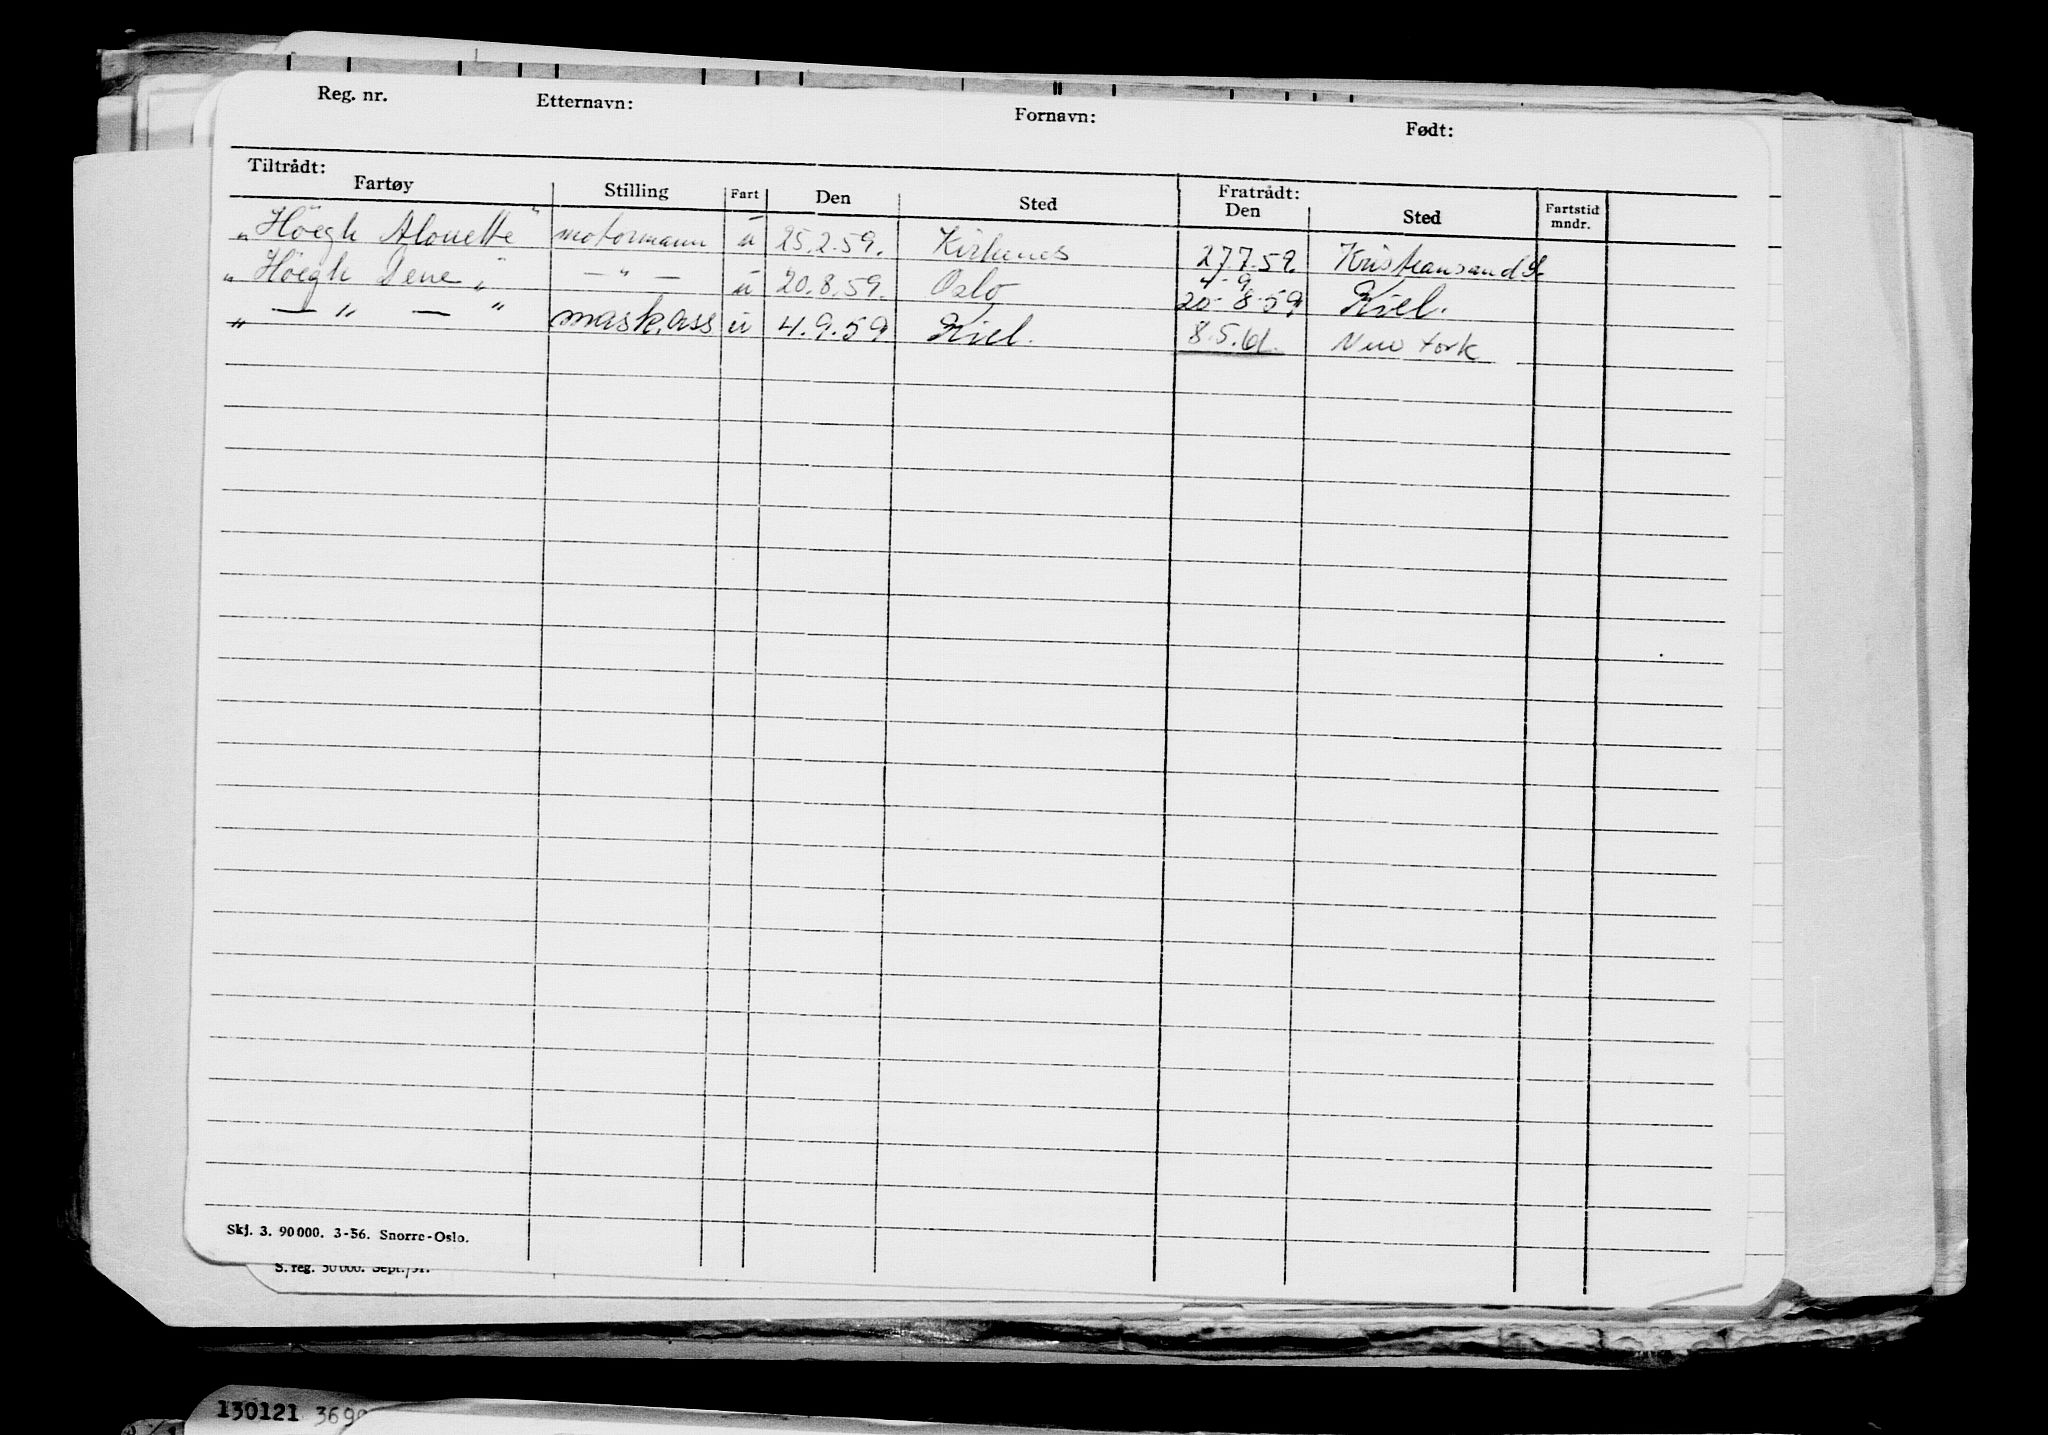 Reg. nr. Etternavn: Fornavn: Født:
Tiltrådt: Fratrådt:
Fartøy Stilling Fart Den Sted Den Sted Fartstid mndr.
"Höegh Alouette" motormann u 25.2.59. Kirkenes 27.7.59. Kristiansand S.
"Höegh Dene" — " — u 20.8.59. Oslo 4-9 20-8-59 Kiel.
" — " — " mask.ass u 4.9.59 Kiel. 8.5.61. New York
Skj. 3. 90000. 3-56. Snorre-Oslo.
S. reg. 50000. Sept./51.
130121 369